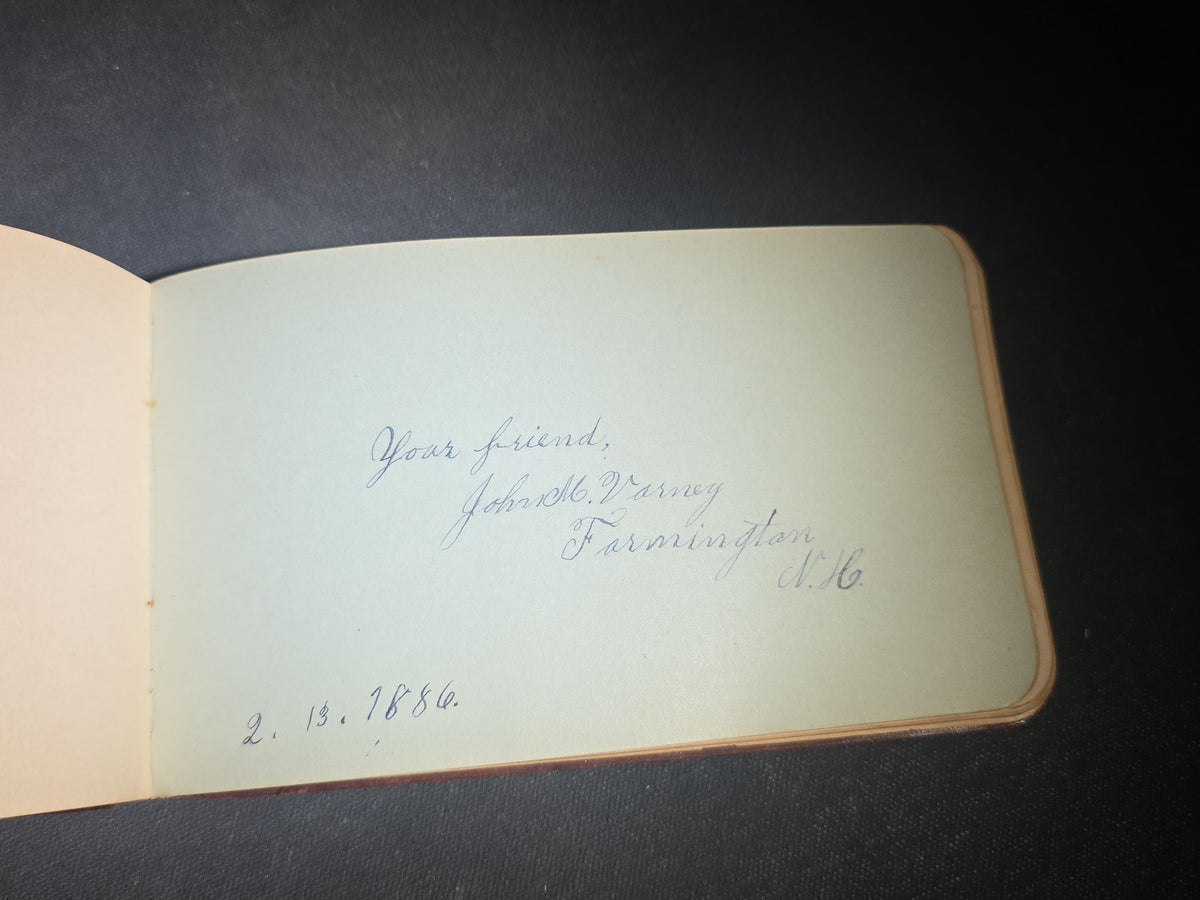 Your friend,
John M. Varney
Farmington
N.H.
2. 13. 1886.